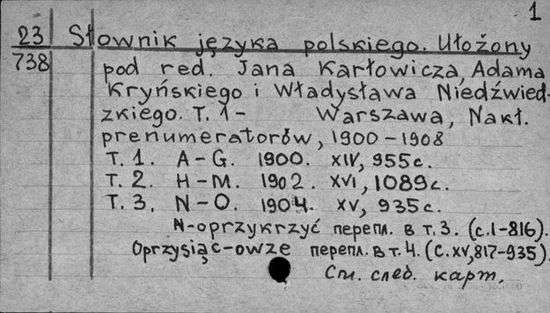 1
23 Słownik języka polskiego. Ułożony
738 pod red. Jana Karłowicza, Adama
Kryńskiego i Władysława Niedźwied-
zkiego. T. 1- Warszawa, Nakł.
prenumeratorów, 1900-1908
T. 1. A-G. 1900. XIV, 955c.
T. 2. H-M. 1902. XVI, 1089c.
T. 3. N-O. 1904. XV, 935c.
N-oprzykrzyć перепл. в т. 3. (с.I-816).
Oprzysiąc-owze перепл. в т. 4. (с.XV,817-935).
См. след. карт.